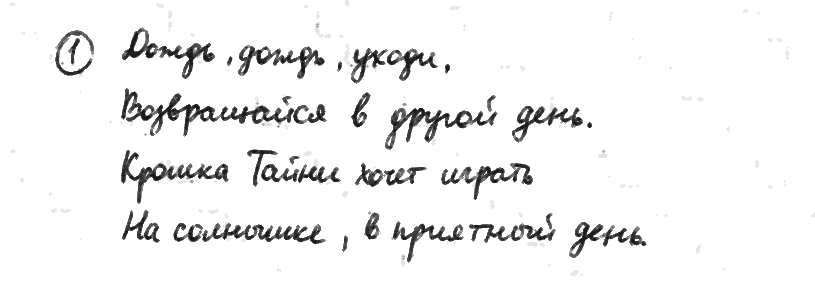 ① Дождь, дождь, уходи,
Возвращайся в другой день.
Крошка Тайни хочет играть
На солнышке, в приятный день.